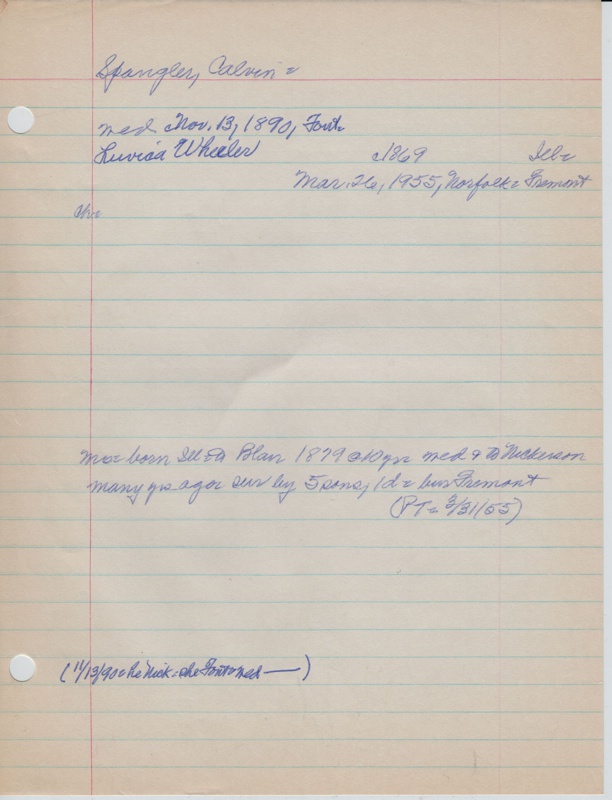 Spangler, Calvin =
med Nov. 13, 1890, Font=
Luvica Wheeler
c1869 Ill=
Mar. 26, 1955, Norfolk= Fremont
ch=
Mrs= born Ill= to Blair 1879 @10yr= med & to Nickerson
many yrs ago= sur by 5 sons, 1d= bur Fremont
(PT= 3/31/55)
(11/13/90= he Nick= she Font= med —)